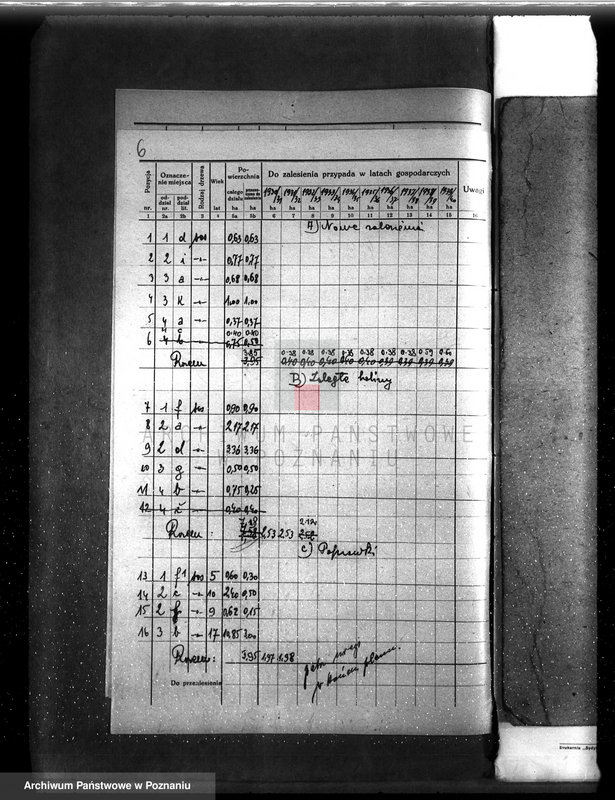 6
Pozycja nr. | Oznaczenie miejsca | Rodzaj drzewa | Wiek lat | Powierzchnia | Do zalesienia przypada w latach gospodarczych | Uwagi
oddział nr. | pododdział lit. | całego działu ha
ha ha ha ha ha ha ha ha ha ha
1 2a 2b 3 4 5a 5b 6 7 8 9 10 11 12 13 14 15 16
A) Nowe zalesienia
1 1 d sos 0,63 0,63
2 2 i 0,77 0,77
3 3 a 0,68 0,68
4 3 k 1.00 1.00
5 4 a 0,37 0,37
c 0.40 0.40
6 4 b 0,75 0,50
3.85 0.38 0.38 0.38 0.38 0.38 0.38 0.38 0.59 0.60
Razem 3,95 0,40 0,40 0,40 0,40 0,40 0,39 0,39 0,39 0,39
B) Zaległe halizny
7 1 f sos 0,90 0,90
8 2 a 2,17 2,17
9 2 d 3,36 3,36
10 3 g 0,50 0,50
11 4 b 0,75 0,25
12 4 0,40 0,40
Razem: 2,53 2,53
C) Poprawki
13 1 f¹ sos 5 0,60 0,30
14 2 c 10 2,40 0,50
15 2 f 9 0,62 0,15
16 3 b 17 10,85 3,00
Razem: 3,95 1,97 1,98
w końcu planu.
Do przeniesienia
ARCHIWUM PAŃSTWOWE
W POZNANIU
Drukarnia „Bydg
Archiwum Państwowe w Poznaniu